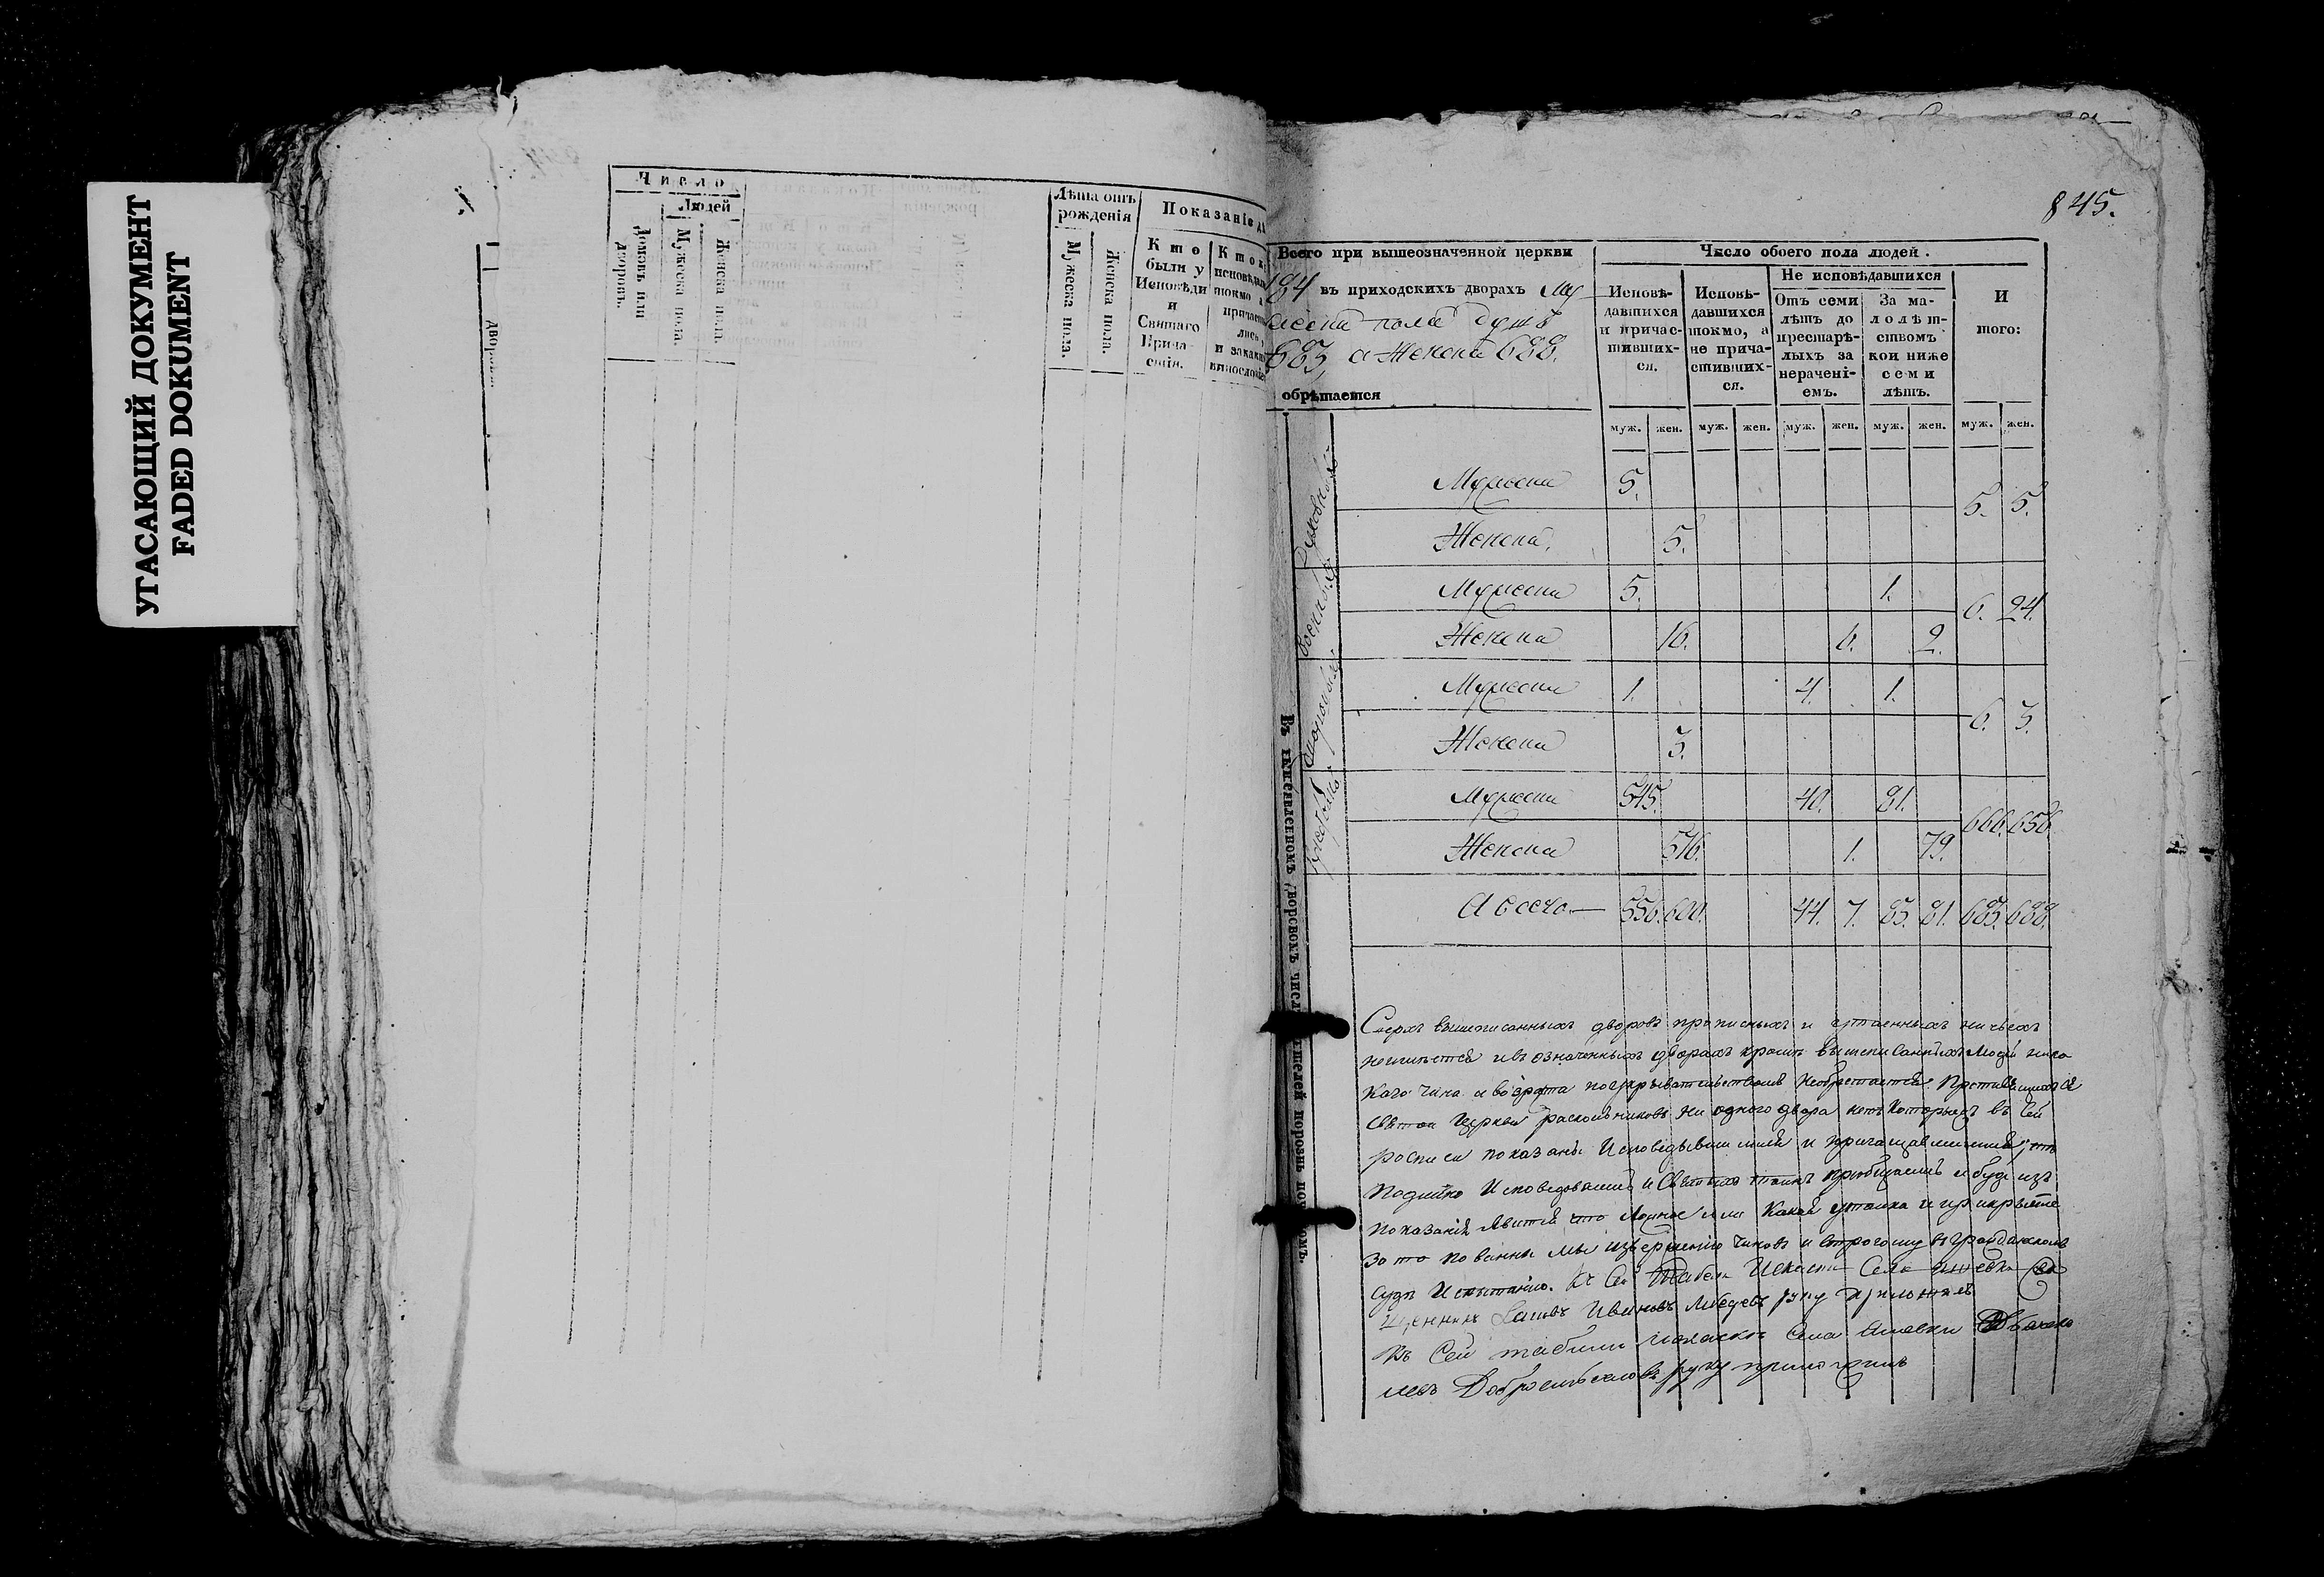 УГАСАЮЩИЙ ДОКУМЕНТ
FADED DOKUMENT
Число
Людей
Домовъ или дворовъ.
Мужеска пола.
Женска пола.
Лѣта отъ рожденія
Мужеска пола.
Женска пола.
Показаніе
Кто были у Исповѣди и Святаго Прича-
стія.
845.
Всего при вышеозначенной церкви
184 въ приходскихъ дворахъ Му
жеска пола душъ
683, а Женска 688.
обрѣтается
Число обоего пола людей.
Исповѣ-
давшихся
и причас-
тивших-
ся.
Исповѣ-
давшихся
токмо, а
не прича-
стивших-
ся.
Не исповѣдавшихся
Отъ семи
лѣтъ до
престарѣ-
лыхъ за
нерачені-
емъ.
За ма-
лолѣт-
ствомъ
кои ниже
семи
лѣтъ.
И
того:
муж. жен. муж. жен. муж. жен. муж. жен. муж. жен.
Духовныхъ
Мужеска 5.
5. 5.
Женска. 5.
Военныхъ
Мужеска 5. 1.
6. 24.
Женска 16. 6. 2.
Мужеска 1. 4. 1.
6. 3.
Женска 3.
Мужеска 545. 40. 81.
666. 656
Женска 576. 1. 79.
А всего 556. 600. 44. 7. 83. 81. 683. 688.
Сверхъ вышеписанныхъ дворовъ прописныхъ и утаенныхъ ничьихъ
неимѣется и въ означенныхъ дворахъ кромѣ вышеписанныхъ людей ника
каго чина и возраста поукрывательствомъ необретается
церкви раскольниковъ ни одного двора нетъ которые въ сей
росписи показаны исповедывшимися и причащавшимися, тѣ
исповедовались и Святыхъ таинъ приобщались а буде изъ
показанія явится что ложное или какая утайка и прикрытие
за то повинны мы изверженію чиновъ и строгому въ гражданскомъ
судѣ Испытанію. Къ сей табели Села
Ивановъ Лебедевъ руку приложилъ
Къ сей табели Села
Добросмысловъ руку приложилъ